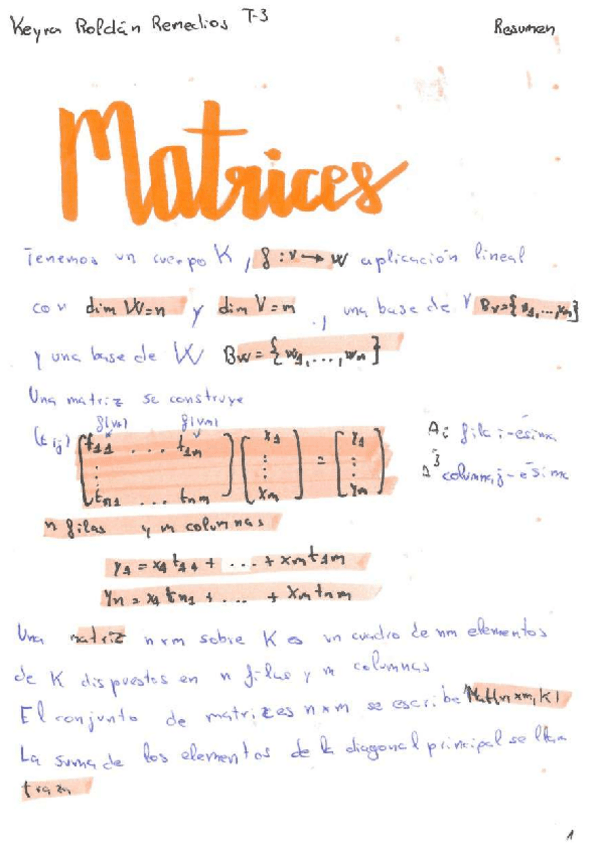 Keyra Roldán Remedios T-3
Resumen
Matrices
Tenemos un cuerpo K, f: V → W aplicación lineal
con dim W=n y dim V=m, una base de V Bv={v1,...,vm}
y una base de W Bw={w1,...,wn}
Una matriz se construye
f(v1) f(vm)
(tij) (t11 ... t1m ⋮ tn1 ... tnm) (x1 ⋮ xm) = (y1 ⋮ yn)
Ai fila i-ésima
A^j columna j-ésima
n filas y m columnas
y1 = x1 t11 + ... + xm t1m
yn = x1 tn1 + ... + xm tnm
Una matriz nxm sobre K es un cuadro de nm elementos
de K dispuestos en n filas y m columnas
El conjunto de matrizes nxm se escribe Mat(nxm, K)
La suma de los elementos de la diagonal principal se llama
traza
1